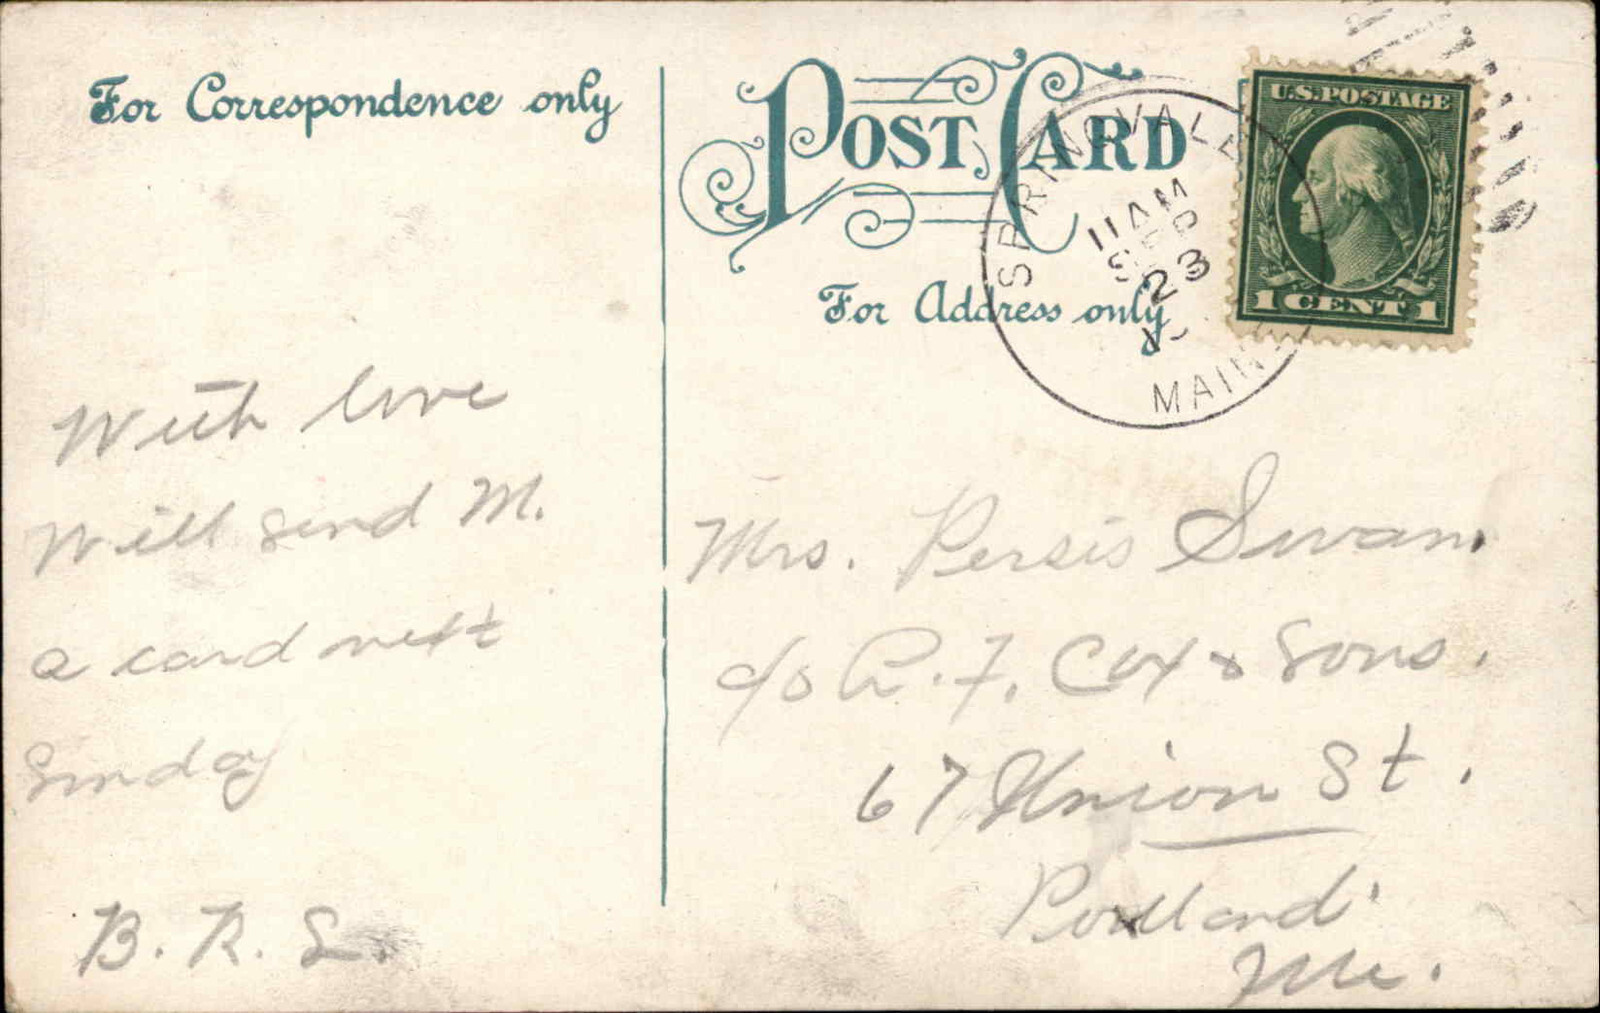 For Correspondence only
With love
Will send M.
a card next
Sunday
B. R. S.
POST CARD
For Address only
SPRINGVALE
11 AM
SEP
23
MAINE
U.S. POSTAGE
1 CENT 1
Mrs. Persis Swan.
c/o A. F. Cox & Sons.
67 Union St.
Portland.
Me.